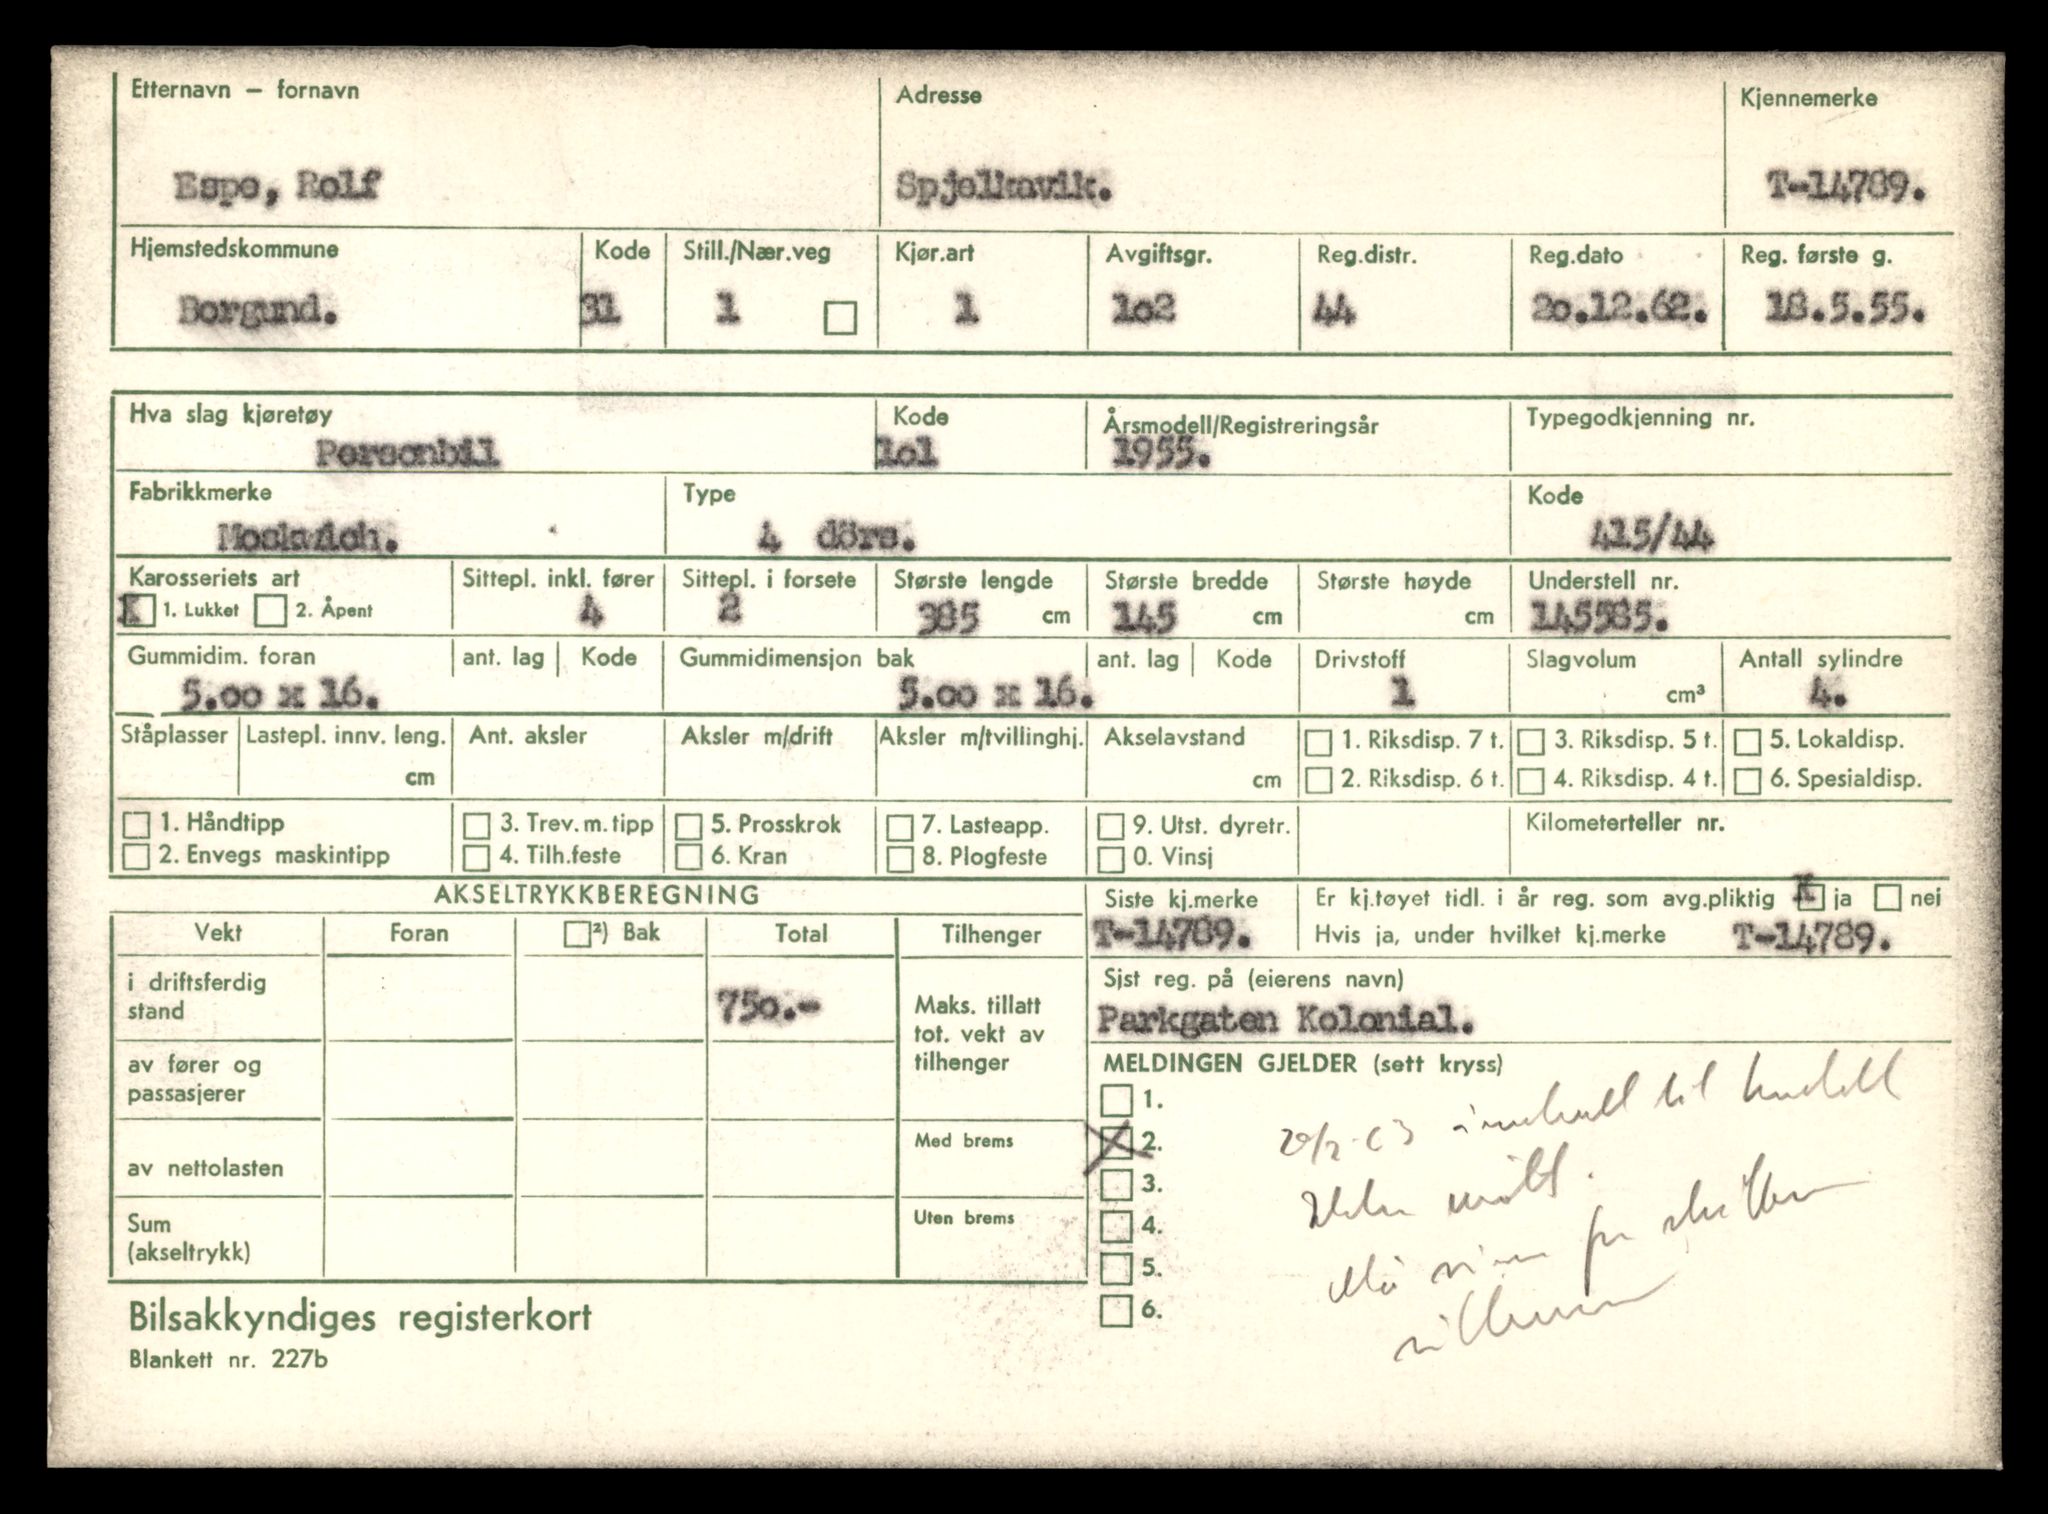 Etternavn – fornavn Adresse Kjennemerke
Espe, Rolf Spjelkavik. T-14789.
Hjemstedskommune Kode Still./Nær.veg Kjør.art Avgiftsgr. Reg.distr. Reg.dato Reg. første g.
Borgund. 31 1 1 1o2 44 2o.12.62. 18.5.55.
Hva slag kjøretøy Kode Årsmodell/Registreringsår Typegodkjenning nr.
Personbil 1o1 1955.
Fabrikkmerke Type Kode
Moskvich. 4 dörs. 415/44
Karosseriets art Sittepl. inkl. fører Sittepl. i forsete Største lengde Største bredde Største høyde Understell nr.
X 1. Lukket 2. Åpent 4 2 385 cm 145 cm cm 145585.
Gummidim. foran ant. lag Kode Gummidimensjon bak ant. lag Kode Drivstoff Slagvolum Antall sylindre
5.oo x 16. 5.oo x 16. 1 cm³ 4.
Ståplasser Lastepl. innv. leng. Ant. aksler Aksler m/drift Aksler m/tvillinghj. Akselavstand 1. Riksdisp. 7 t. 3. Riksdisp. 5 t. 5. Lokaldisp.
cm cm 2. Riksdisp. 6 t. 4. Riksdisp. 4 t. 6. Spesialdisp.
1. Håndtipp 3. Trev. m. tipp 5. Prosskrok 7. Lasteapp. 9. Utst. dyretr. Kilometerteller nr.
2. Envegs maskintipp 4. Tilh.feste 6. Kran 8. Plogfeste 0. Vinsj
AKSELTRYKKBEREGNING Siste kj.merke Er kj.tøyet tidl. i år reg. som avg.pliktig X ja nei
Vekt Foran ²) Bak Total Tilhenger T-14789. Hvis ja, under hvilket kj.merke T-14789.
i driftsferdig stand 750.- Maks. tillatt tot. vekt av tilhenger
Sist reg. på (eierens navn)
Parkgaten Kolonial.
av fører og passasjerer
MELDINGEN GJELDER (sett kryss)
1.
X 2.
3.
4.
5.
6.
Med brems
av nettolasten
Uten brems
Sum (akseltrykk)
innkalt til
møtt.
Må
Bilsakkyndiges registerkort
Blankett nr. 227b